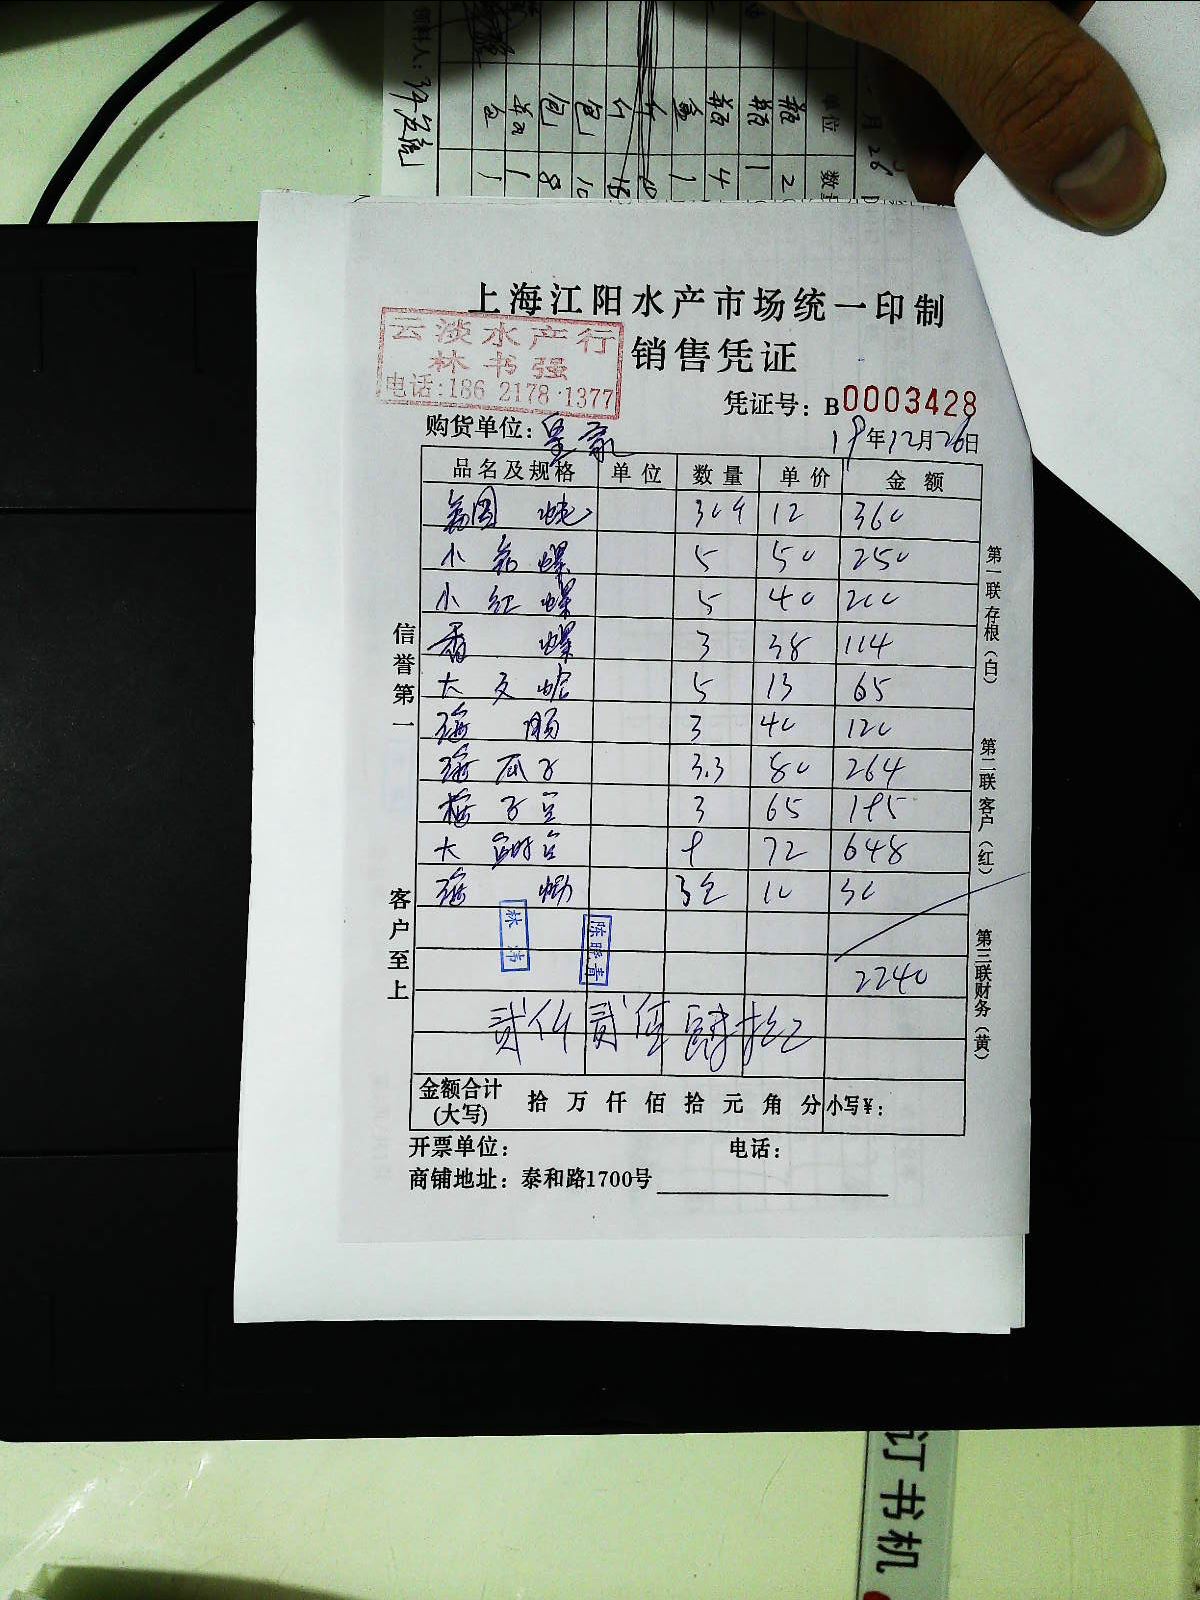 领料人:
单位
数
月 26
瓶 2
瓶 1
瓶 4
盒 1
包 10
包 8
上海江阳水产市场统一印制
云淡水产行
林书强
电话:186 2178 1377
销售凭证
凭证号: B0003428
购货单位: 皇家
19年12月26日
品名及规格 单位 数量 单价 金额
30 12 360
小 螺 5 50 250
小红螺 5 40 200
香螺 3 38 114
大文蛤 5 13 65
海 3 40 120
海瓜子 3.3 80 264
梅子 3 65 195
大 9 72 648
海 3 10 30
林炜
陈晓青
2240
贰仟贰佰肆拾元
金额合计
(大写) 拾 万 仟 佰 拾 元 角 分 小写¥:
开票单位: 电话:
商铺地址: 泰和路1700号
信誉第一
客户至上
第一联存根(白)
第二联客户(红)
第三联财务(黄)
订书机